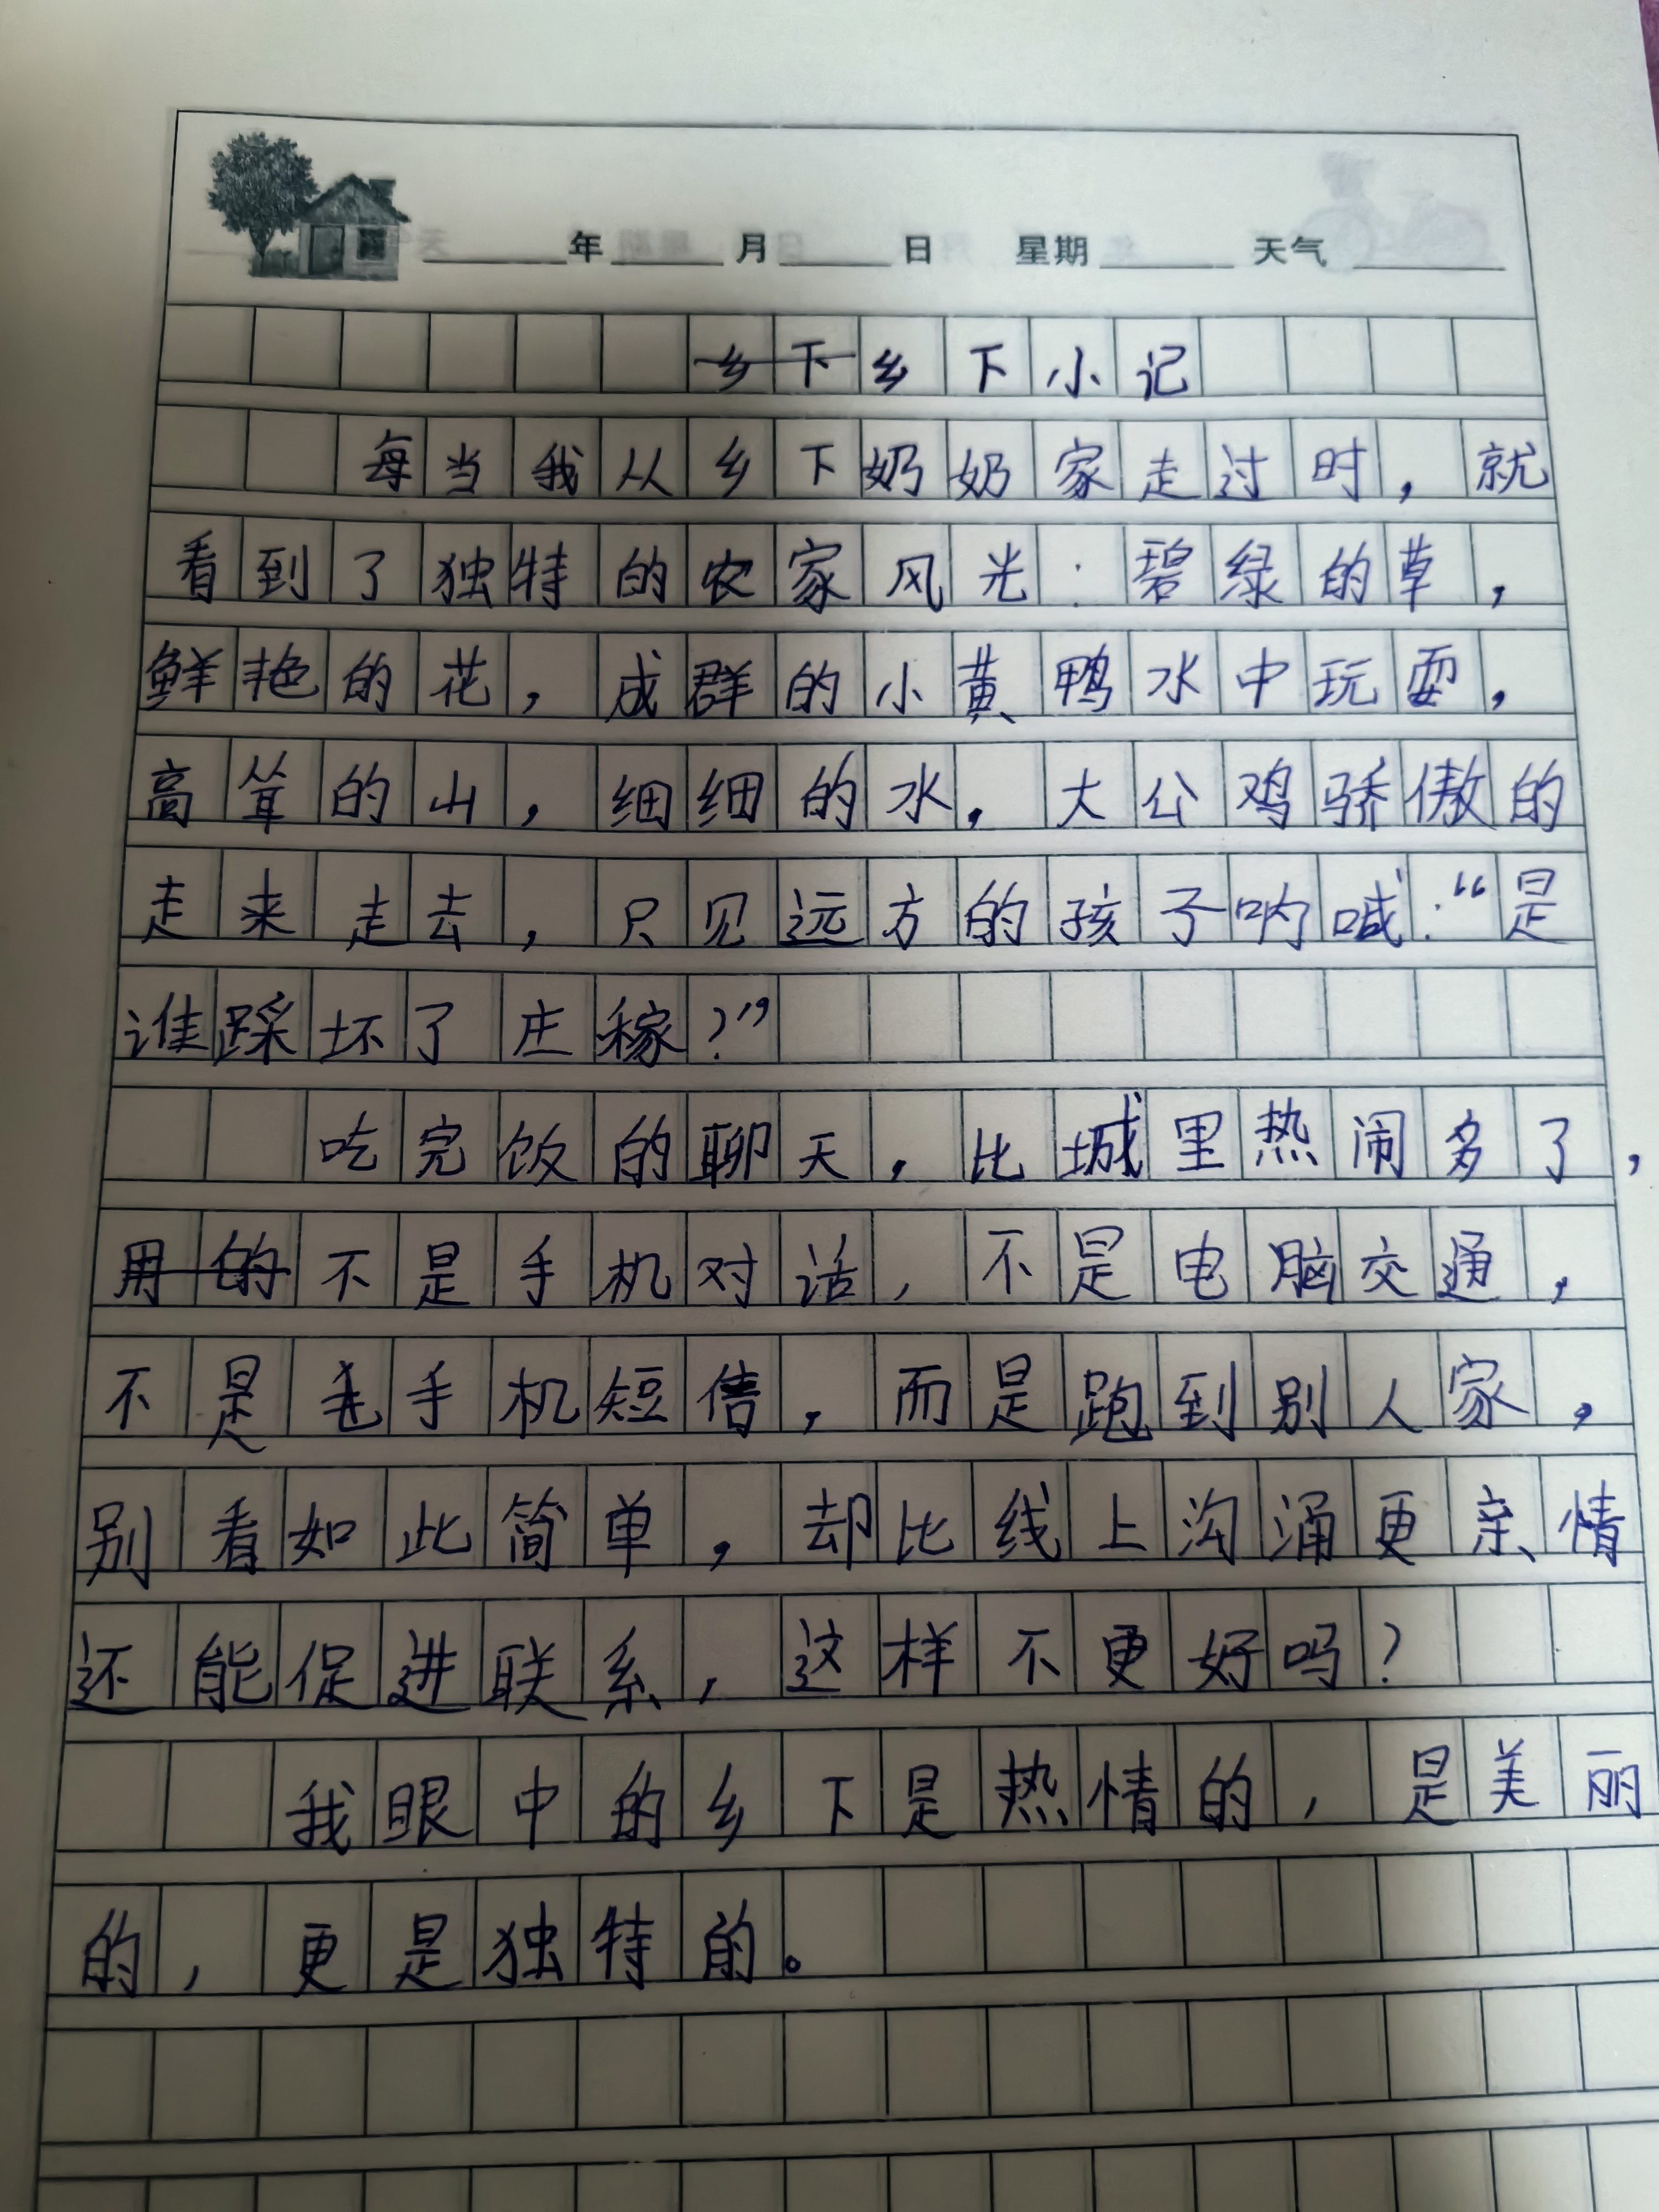 年 月 日 星期 天气
乡下小记
每当我从乡下奶奶家走过时，就
看到了独特的农家风光：碧绿的草，
鲜艳的花，成群的小黄鸭水中玩耍，
高耸的山，细细的水，大公鸡骄傲的
走来走去，只见远方的孩子呐喊：“是
谁踩坏了庄稼？”
吃完饭的聊天，比城里热闹多了，
不是手机对话，不是电脑交通，
不是手机短信，而是跑到别人家，
别看如此简单，却比线上沟涌更亲情
还能促进联系，这样不更好吗？
我眼中的乡下是热情的，是美丽
的，更是独特的。